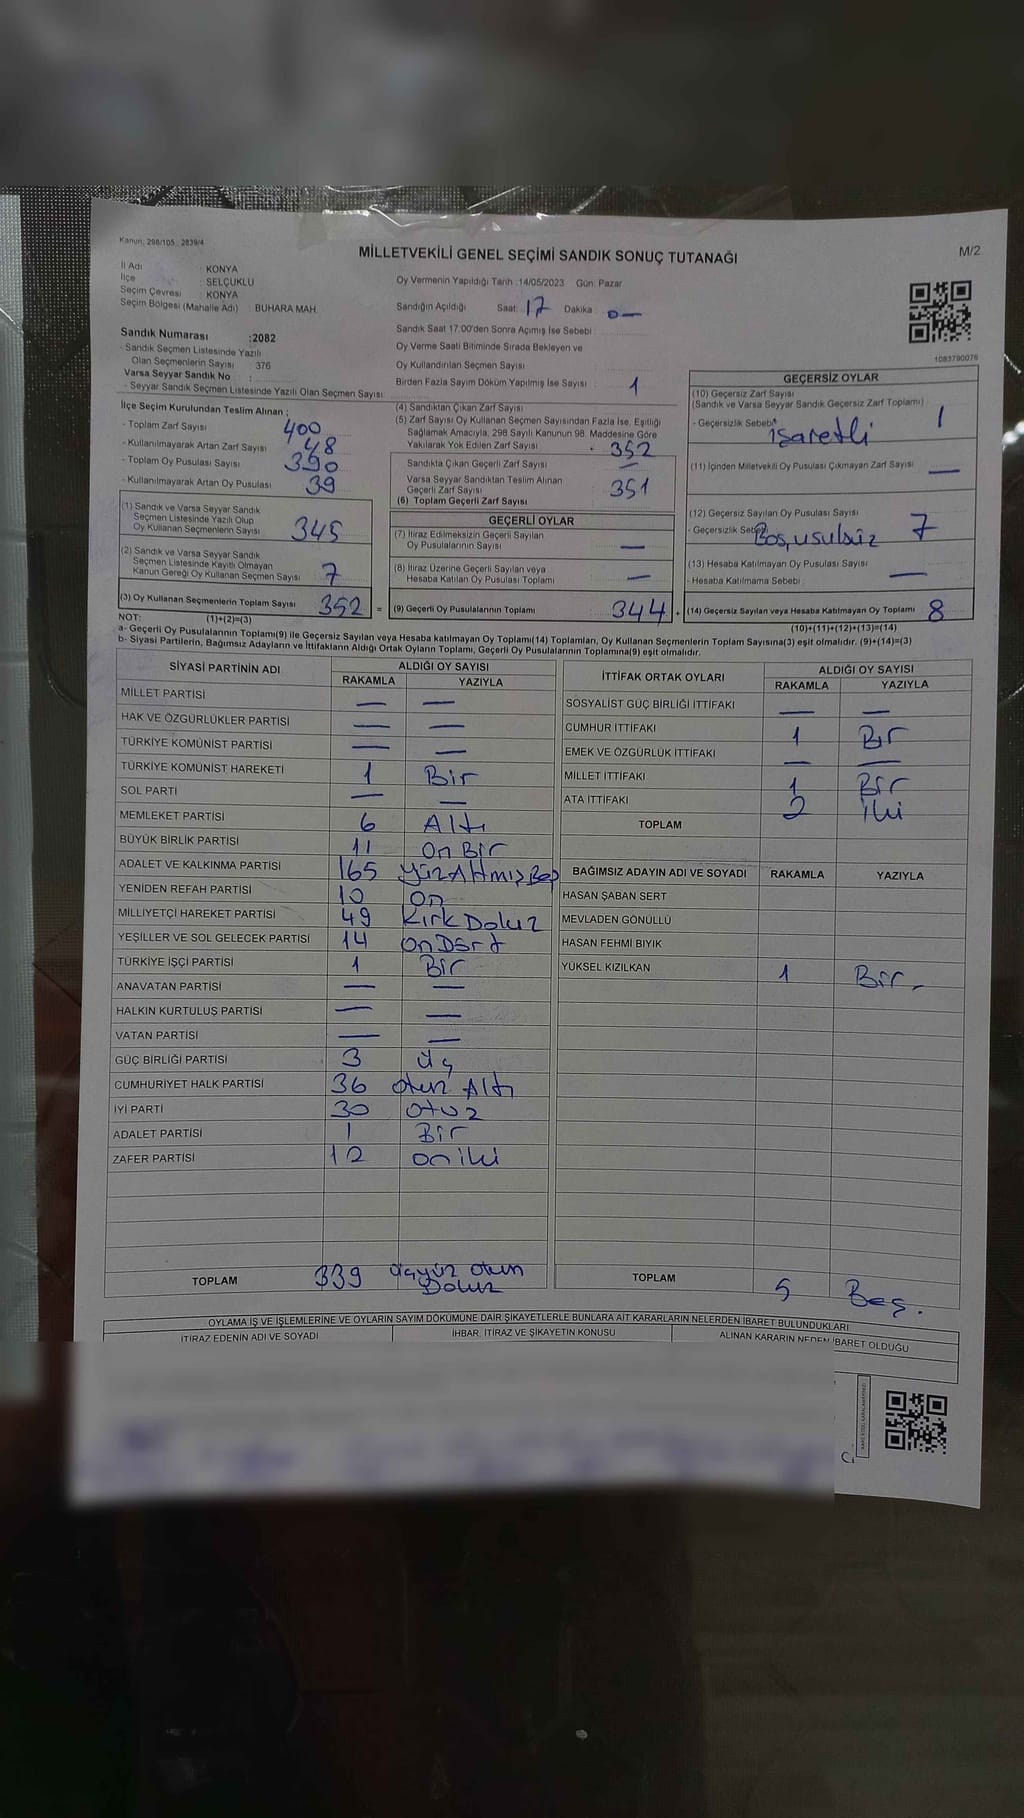 Kanun: 298/105 , 2839/4
MİLLETVEKİLİ GENEL SEÇİMİ SANDIK SONUÇ TUTANAĞI
M/2
İl Adı : KONYA
İlçe : SELÇUKLU
Seçim Çevresi : KONYA
Seçim Bölgesi (Mahalle Adı) BUHARA MAH.
Sandık Numarası :2082
- Sandık Seçmen Listesinde Yazılı
Olan Seçmenlerin Sayısı 376
Varsa Seyyar Sandık No :
- Seyyar Sandık Seçmen Listesinde Yazılı Olan Seçmen Sayısı
Oy Vermenin Yapıldığı Tarih :14/05/2023 Gün: Pazar
Sandığın Açıldığı Saat: 17 Dakika: 0—
Sandık Saat 17:00'den Sonra Açımış İse Sebebi :
Oy Verme Saati Bitiminde Sırada Bekleyen ve
Oy Kullandırılan Seçmen Sayısı
Birden Fazla Sayım Döküm Yapılmış İse Sayısı : 1
1083790076
İlçe Seçim Kurulundan Teslim Alınan ;
- Toplam Zarf Sayısı 400
- Kullanılmayarak Artan Zarf Sayısı 48
- Toplam Oy Pusulası Sayısı 390
- Kullanılmayarak Artan Oy Pusulası 39
(1) Sandık ve Varsa Seyyar Sandık
Seçmen Listesinde Yazılı Olup
Oy Kullanan Seçmenlerin Sayısı 345
(2) Sandık ve Varsa Seyyar Sandık
Seçmen Listesinde Kayıtlı Olmayan
Kanun Gereği Oy Kullanan Seçmen Sayısı 7
(3) Oy Kullanan Seçmenlerin Toplam Sayısı 352 =
(1)+(2)=(3)
(4) Sandıktan Çıkan Zarf Sayısı
(5) Zarf Sayısı Oy Kullanan Seçmen Sayısından Fazla İse, Eşitliği
Sağlamak Amacıyla, 298 Sayılı Kanunun 98. Maddesine Göre
Yakılarak Yok Edilen Zarf Sayısı : 352
Sandıkta Çıkan Geçerli Zarf Sayısı —
Varsa Seyyar Sandıktan Teslim Alınan
Geçerli Zarf Sayısı 351
(6) Toplam Geçerli Zarf Sayısı
GEÇERLİ OYLAR
(7) İtiraz Edilmeksizin Geçerli Sayılan
Oy Pusulalarının Sayısı —
(8) İtiraz Üzerine Geçerli Sayılan veya
Hesaba Katılan Oy Pusulası Toplamı —
(9) Geçerli Oy Pusulalarının Toplamı : 344 +
GEÇERSİZ OYLAR
(10) Geçersiz Zarf Sayısı
(Sandık ve Varsa Seyyar Sandık Geçersiz Zarf Toplamı) 1
- Geçersizlik Sebebi işaretli
(11) İçinden Milletvekili Oy Pusulası Çıkmayan Zarf Sayısı —
(12) Geçersiz Sayılan Oy Pusulası Sayısı 7
- Geçersizlik Sebebi Boş, usulsüz
(13) Hesaba Katılmayan Oy Pusulası Sayısı —
- Hesaba Katılmama Sebebi :
(14) Geçersiz Sayılan veya Hesaba Katılmayan Oy Toplamı 8
(10)+(11)+(12)+(13)=(14)
NOT:
a- Geçerli Oy Pusulalarının Toplamı(9) ile Geçersiz Sayılan veya Hesaba katılmayan Oy Toplamı(14) Toplamları, Oy Kullanan Seçmenlerin Toplam Sayısına(3) eşit olmalıdır. (9)+(14)=(3)
b- Siyasi Partilerin, Bağımsız Adayların ve İttifakların Aldığı Ortak Oyların Toplamı, Geçerli Oy Pusulalarının Toplamına(9) eşit olmalıdır.
SİYASİ PARTİNİN ADI ALDIĞI OY SAYISI
RAKAMLA YAZIYLA
MİLLET PARTİSİ — —
HAK VE ÖZGÜRLÜKLER PARTİSİ — —
TÜRKİYE KOMÜNİST PARTİSİ — —
TÜRKİYE KOMÜNİST HAREKETİ 1 Bir
SOL PARTİ — —
MEMLEKET PARTİSİ 6 Altı
BÜYÜK BİRLİK PARTİSİ 11 On Bir
ADALET VE KALKINMA PARTİSİ 165 YüzAltmışBeş
YENİDEN REFAH PARTİSİ 10 On
MİLLİYETÇİ HAREKET PARTİSİ 49 Kırk Dokuz
YEŞİLLER VE SOL GELECEK PARTİSİ 14 On Dört
TÜRKİYE İŞÇİ PARTİSİ 1 Bir
ANAVATAN PARTİSİ — —
HALKIN KURTULUŞ PARTİSİ — —
VATAN PARTİSİ — —
GÜÇ BİRLİĞİ PARTİSİ 3 üç
CUMHURİYET HALK PARTİSİ 36 otuz Altı
İYİ PARTİ 30 otuz
ADALET PARTİSİ 1 Bir
ZAFER PARTİSİ 12 on iki
TOPLAM 339 üçyüz otuz
Dokuz
İTTİFAK ORTAK OYLARI ALDIĞI OY SAYISI
RAKAMLA YAZIYLA
SOSYALİST GÜÇ BİRLİĞİ İTTİFAKI — —
CUMHUR İTTİFAKI 1 Bir
EMEK VE ÖZGÜRLÜK İTTİFAKI — —
MİLLET İTTİFAKI 1 Bir
ATA İTTİFAKI 2 iki
TOPLAM
BAĞIMSIZ ADAYIN ADI VE SOYADI RAKAMLA YAZIYLA
HASAN ŞABAN SERT
MEVLADEN GÖNÜLLÜ
HASAN FEHMİ BIYIK
YÜKSEL KIZILKAN 1 Bir
TOPLAM 5 Beş.
OYLAMA İŞ VE İŞLEMLERİNE VE OYLARIN SAYIM DÖKÜMÜNE DAİR ŞİKAYETLERLE BUNLARA AİT KARARLARIN NELERDEN İBARET BULUNDUKLARI
İTİRAZ EDENİN ADI VE SOYADI İHBAR, İTİRAZ VE ŞİKAYETİN KONUSU ALINAN KARARIN NEDEN İBARET OLDUĞU